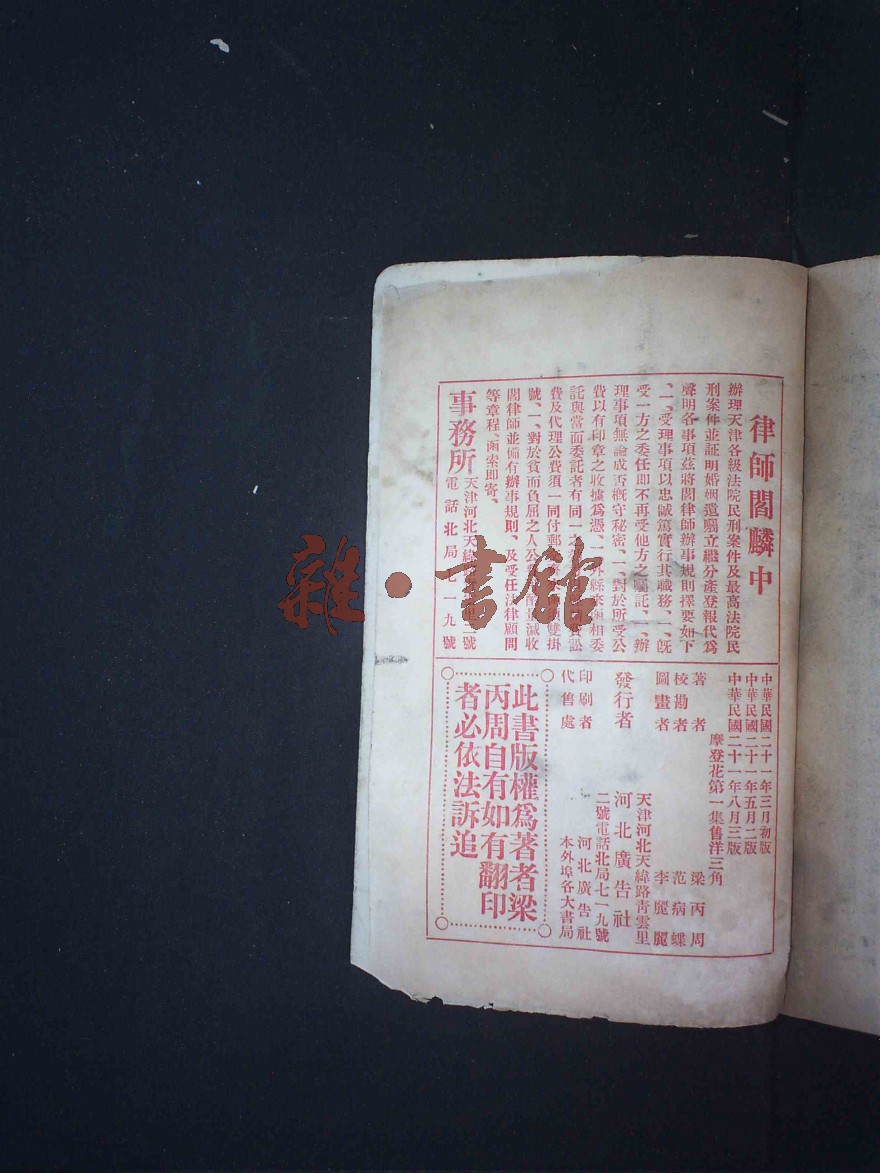 律師閻麟中
辦理天津各級法院民刑案件及最高法院民
刑案件並証明婚姻遺囑立繼分產登報代為
聲明各事項茲將閻律師辦事規則擇要如下
、一、受理事項以忠誠篤實行其職務、一、旣
受一方之委任即不再受他方之囑託、一、辦
理事項無論成否槪守秘密、一、對於所受公
費以有印章之收據爲憑、一、縣來函相委
託與當面委託者有同一之訟
費及代理公費須一同付郵雙掛
號、一、對於貧而負屈之人公費減收
閻律師並備有辦事規則、及受任法律顧問
等章程、函索即寄、
事務所
天津河北天緯二號
電話北局七一九號
中華民國二十一年三月初版
中華民國二十一年五月二版
中華民國二十一年八月三版
摩登花第一集售洋三角
著者 梁丙周
校勘者 范病蝶
圖畫者 李麗麗
發行者
天津河北天緯路靑雲里
河北廣告社
二號電話北局七一九號
印刷者 河北廣告社
代售處 本外埠各大書局
此書版權爲著者梁
丙周自有如有翻印
者必依法訴追
雜·書館